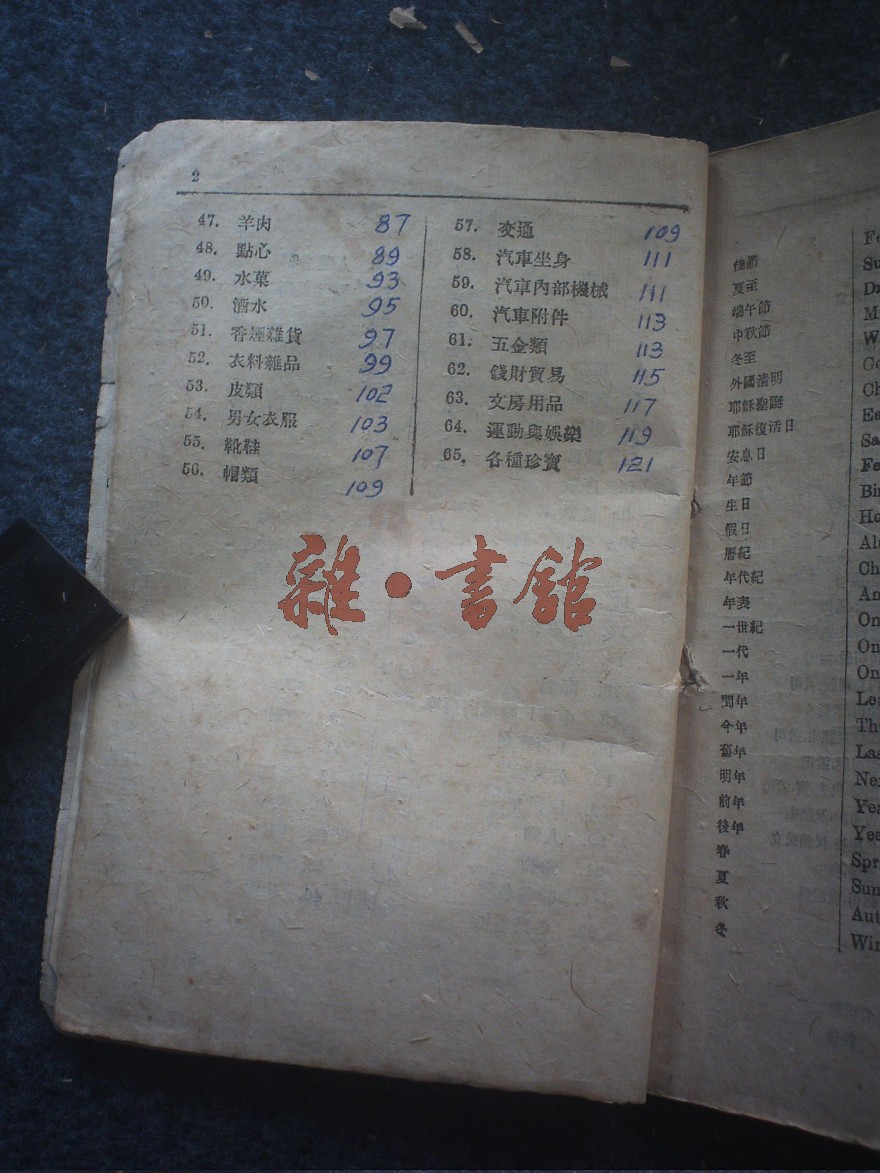 2
47. 羊肉 87
48. 點心 89
49. 水菓 93
50. 酒水 95
51. 香煙雜貨 97
52. 衣料雜品 99
53. 皮類 102
54. 男女衣服 103
55. 靴鞋 107
56. 帽類 109
57. 交通 109
58. 汽車坐身 111
59. 汽車內部機械 111
60. 汽車附件 113
61. 五金類 113
62. 錢財貿易 115
63. 文房用品 117
64. 運動與娛樂 119
65. 各種珍寶 121
雜·書館
佳節 Fe
夏至 Su
端午節 Dr
中秋節 M
冬至 W
外國清明 Go
耶穌聖誕 Ch
耶穌復活日 Ea
安息日 Sa
年節 Fe
生日 Bir
假日 Ho
曆紀 Al
年代紀 Ch
年表 An
一世紀 On
一代 On
一年 On
閏年 Lea
今年 Th
舊年 Las
明年 Nex
前年 Yea
後年 Yea
春 Spr
夏 Sum
秋 Aut
冬 Win